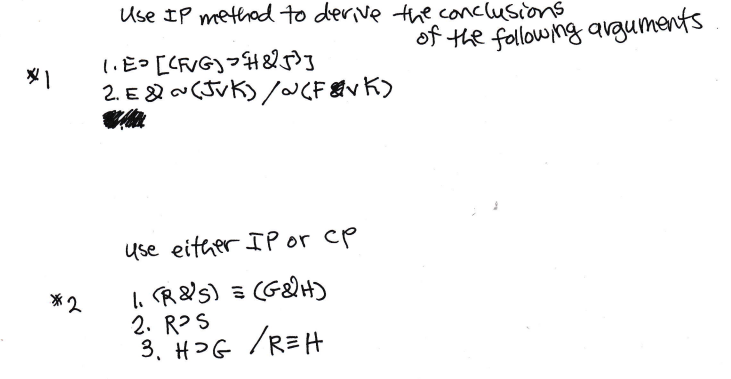 Use IP method to derive the conclusions
of the following arguments
*1
1. E⊃[(FVG)⊃(H&J)]
2. E & ~(JVK) /~(F V K)
Use either IP or CP
*2
1. (R&S) ≡ (G&H)
2. R⊃S
3. H⊃G /R≡H